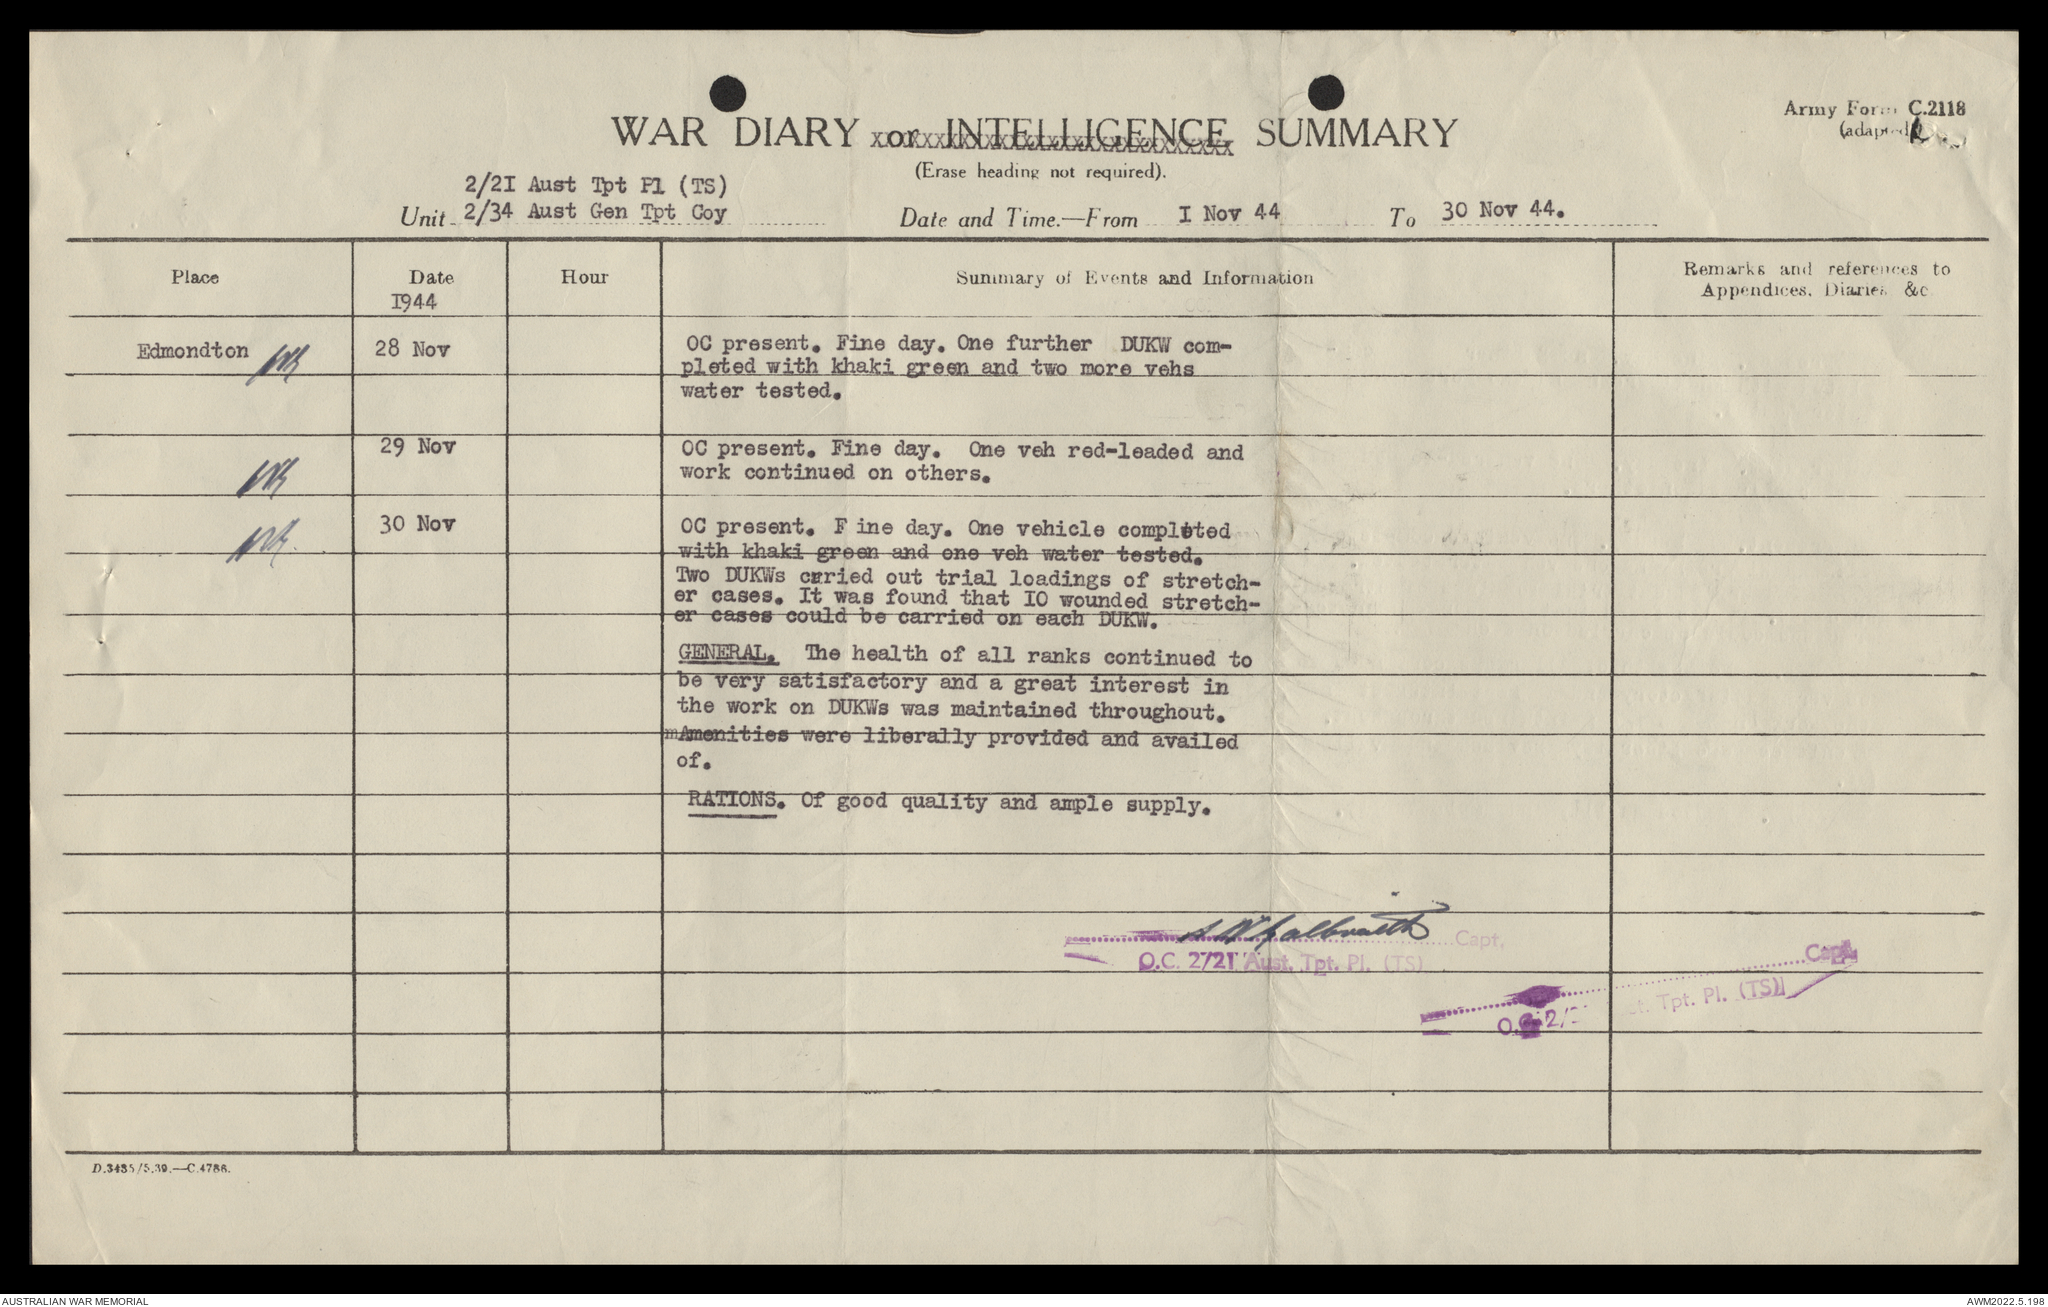 Army Form C.2118
(adapted)
WAR DIARY or INTELLIGENCE SUMMARY
(Erase heading not required).
2/2I Aust Tpt Pl (TS)
Unit 2/34 Aust Gen Tpt Coy Date and Time.—From I Nov 44 To 30 Nov 44.
Place Date Hour Summary of Events and Information Remarks and references to
Appendices, Diaries &c
I944
Edmondton 28 Nov OC present. Fine day. One further DUKW com-
pleted with khaki green and two more vehs
water tested.
29 Nov OC present. Fine day. One veh red-leaded and
work continued on others.
30 Nov OC present. F ine day. One vehicle completed
with khaki green and one veh water tested.
Two DUKWs crried out trial loadings of stretch-
er cases. It was found that IO wounded stretch-
er cases could be carried on each DUKW.
GENERAL. The health of all ranks continued to
be very satisfactory and a great interest in
the work on DUKWs was maintained throughout.
mAmenities were liberally provided and availed
of.
RATIONS. Of good quality and ample supply.
Galbraith Capt,
O.C. 2/21 Aust. Tpt. Pl. (TS)
Capt,
O.C. 2/ Tpt. Pl. (TS)
D.3435/5.39.—C.4786.
AUSTRALIAN WAR MEMORIAL AWM2022.5.198